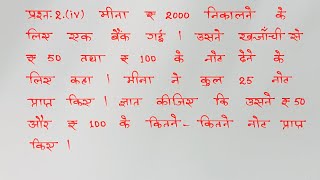 प्रश्न.2.(iv) मीना ₹ 2000 निकालने के
लिए एक बैंक गई । उसने खजाँची से
₹ 50 तथा ₹ 100 के नोट देने के
लिए कहा । मीना ने कुल 25 नोट
प्राप्त किए । ज्ञात कीजिए कि उसने ₹ 50
और ₹ 100 के कितने - कितने नोट प्राप्त
किए ।